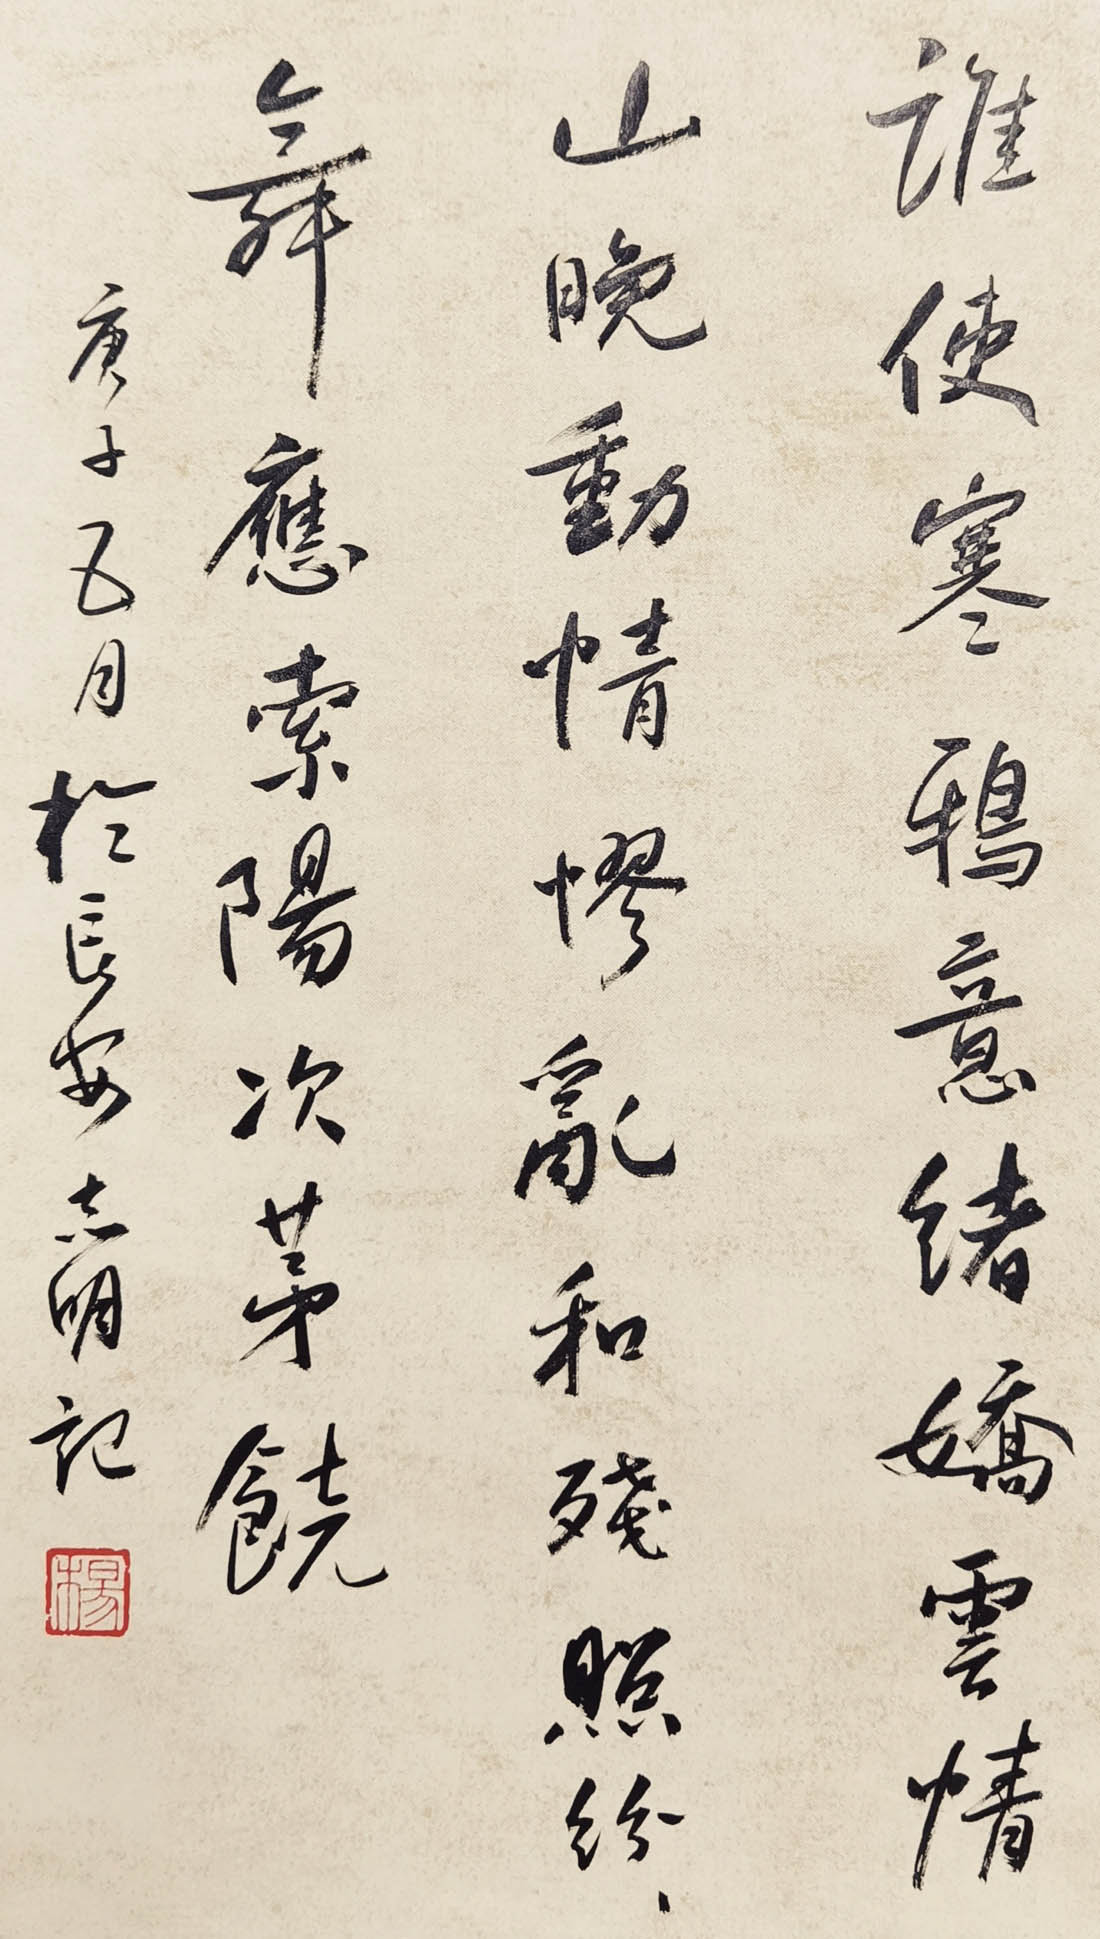 誰使寒鴉意緒嬌雲情
山晚動情憀亂和殘照紛、
舞應索陽次茅饒
庚子五月於長安志明記
楊